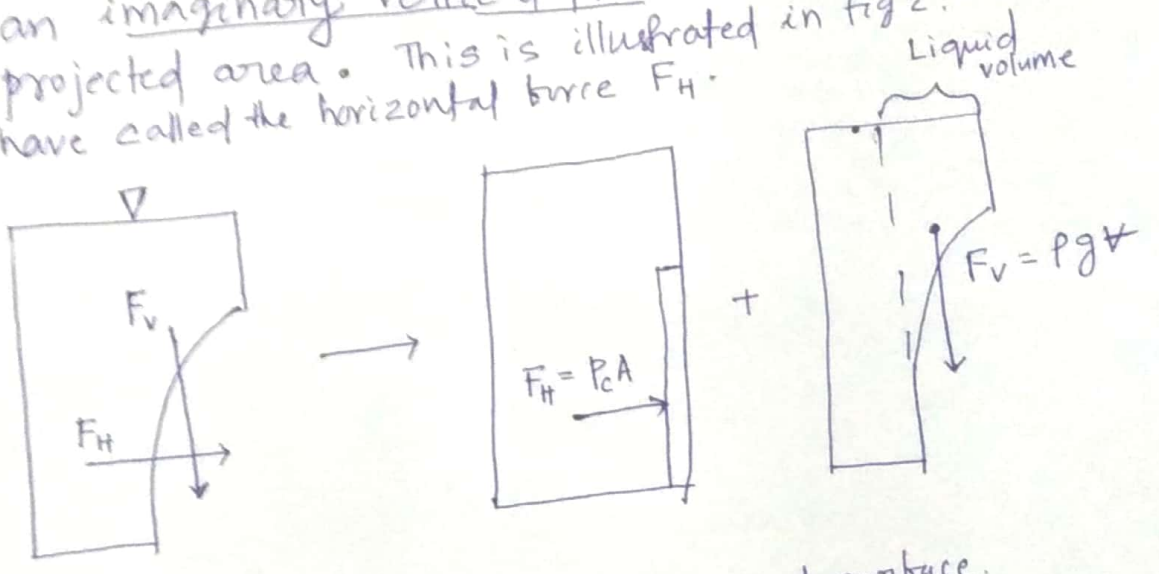 an imaginary
projected area. This is illustrated in fig 2.
have called the horizontal force FH.
Liquid
volume
∇
Fv
FH
FH = PcA
+
Fv = ρg∀